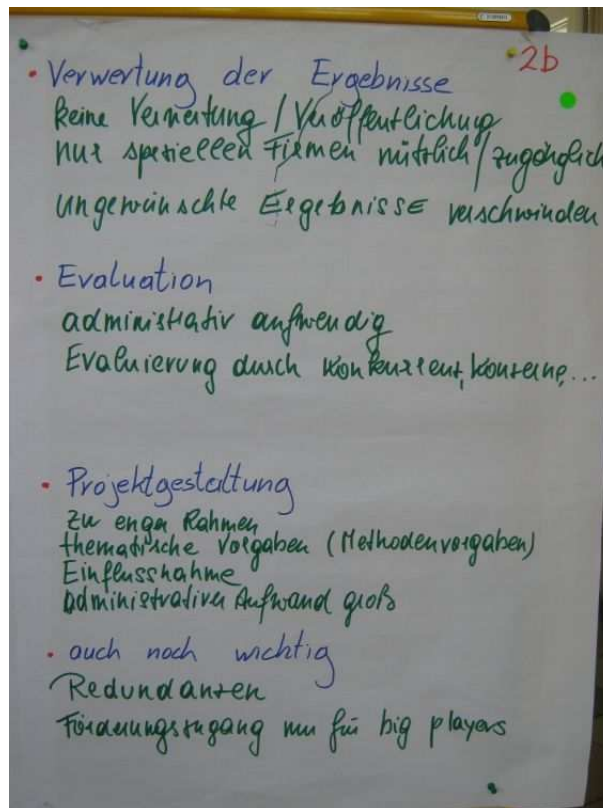 2b
• Verwertung der Ergebnisse
keine Verwertung / Veröffentlichung
nur speziellen Firmen nützlich / zugänglich
ungewünschte Ergebnisse verschwinden
• Evaluation
administrativ aufwendig
Evaluierung durch Konkurrent, Konzerne, ...
• Projektgestaltung
zu enger Rahmen
thematische Vorgaben (Methodenvorgaben)
Einflussnahme
administrativer Aufwand groß
• auch noch wichtig
Redundanzen
Förderungszugang nur für big players